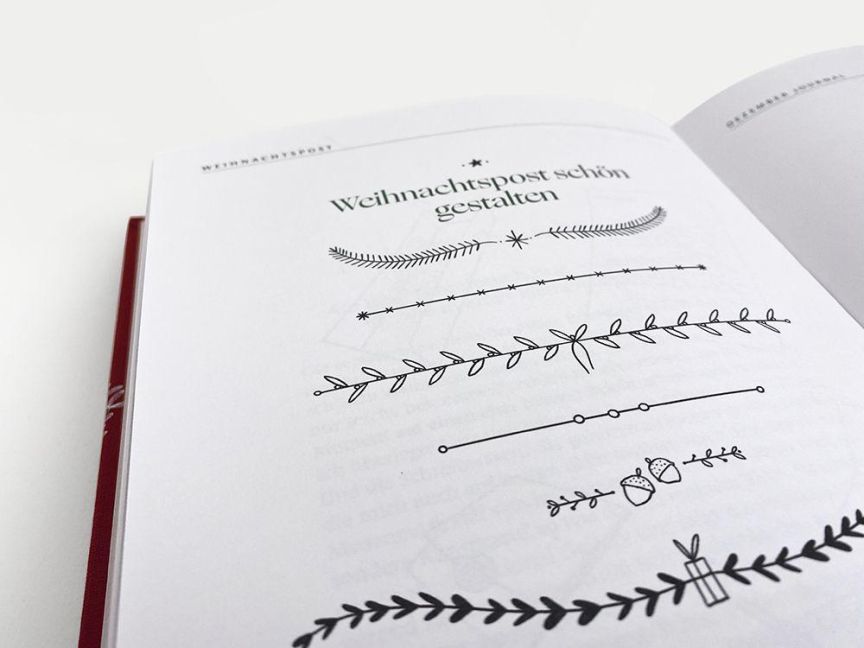 WEIHNACHTSPOST
DEZEMBER JOURNAL
Weihnachtspost schön
gestalten